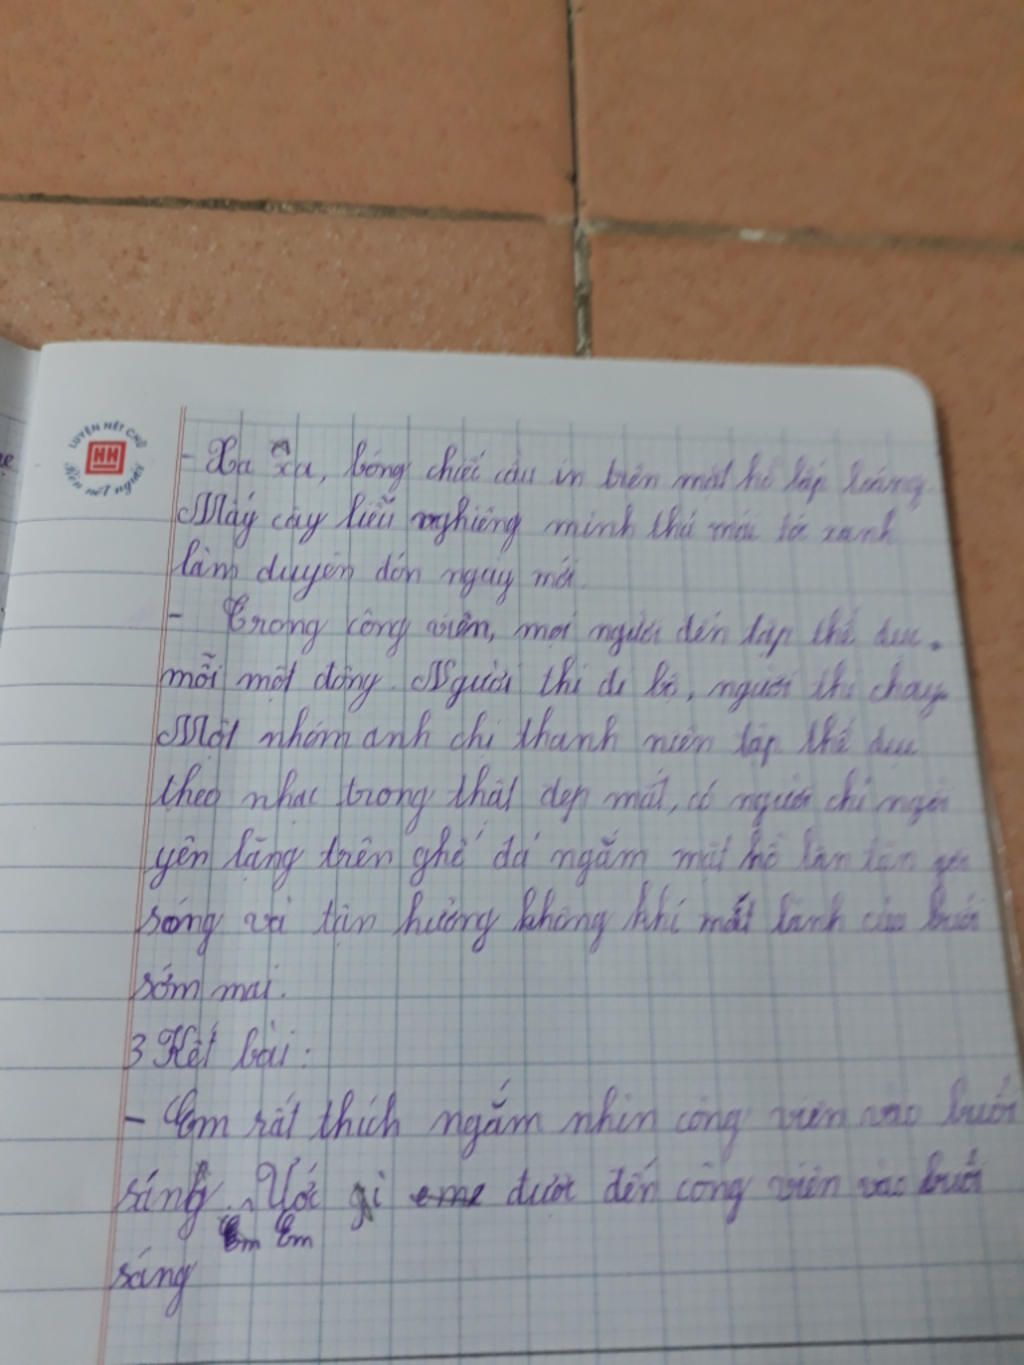 LUYỆN NÉT CHỮ
HH
Rèn nết người
- Xa xa, bóng chiếc cầu in trên mặt hồ lấp loáng.
Mấy cây liễu nghiêng mình thả mái tóc xanh
làm duyên đón ngày mới.
- Trong công viên, mọi người đến tập thể dục.
mỗi một đông. Người thì đi bộ, người thì chạy.
Một nhóm anh chị thanh niên tập thể dục
theo nhạc trong thật đẹp mắt, có người chỉ ngồi
yên lặng trên ghế đá ngắm mặt hồ lăn tăn gợn
sóng và tận hưởng không khí mát lành của buổi
sớm mai.
3 Kết bài:
- Em rất thích ngắm nhìn công viên vào buổi
sáng. Ước gì em được đến công viên vào buổi
Em Em
sáng